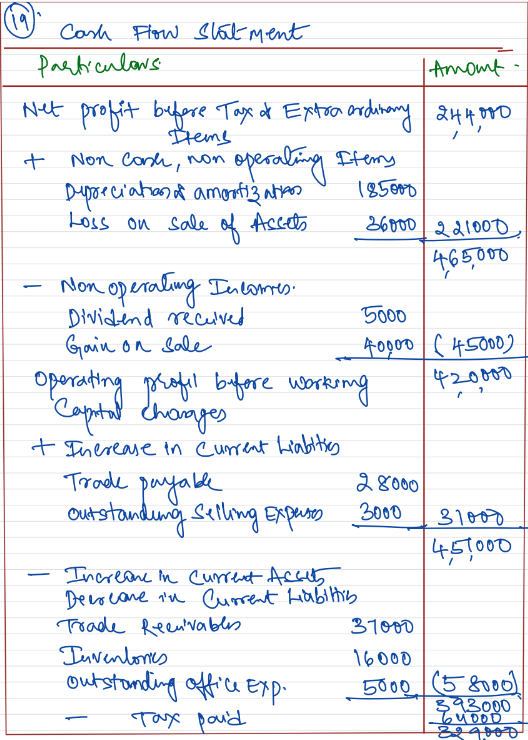 19
Cash Flow Statment
Particulars Amount
Net profit before Tax & Extraordinary 244,000
Items
+ Non cash, non operating Items
Depreciation & amortization 185000
Loss on sale of Assets 36000 221000
465,000
- Non operating Incomes.
Dividend received 5000
Gain on Sale 40,000 (45000)
Operating profit before working 420000
Capital changes
+ Increase in Current Liabilities
Trade payable 28000
Outstanding Selling Expenses 3000 31000
451,000
- Increase in Current Assets
Decrease in Current Liabilities
Trade Receivables 37000
Inventories 16000
Outstanding office Exp. 5000 (58000)
393000
- Tax paid 64000
329,000